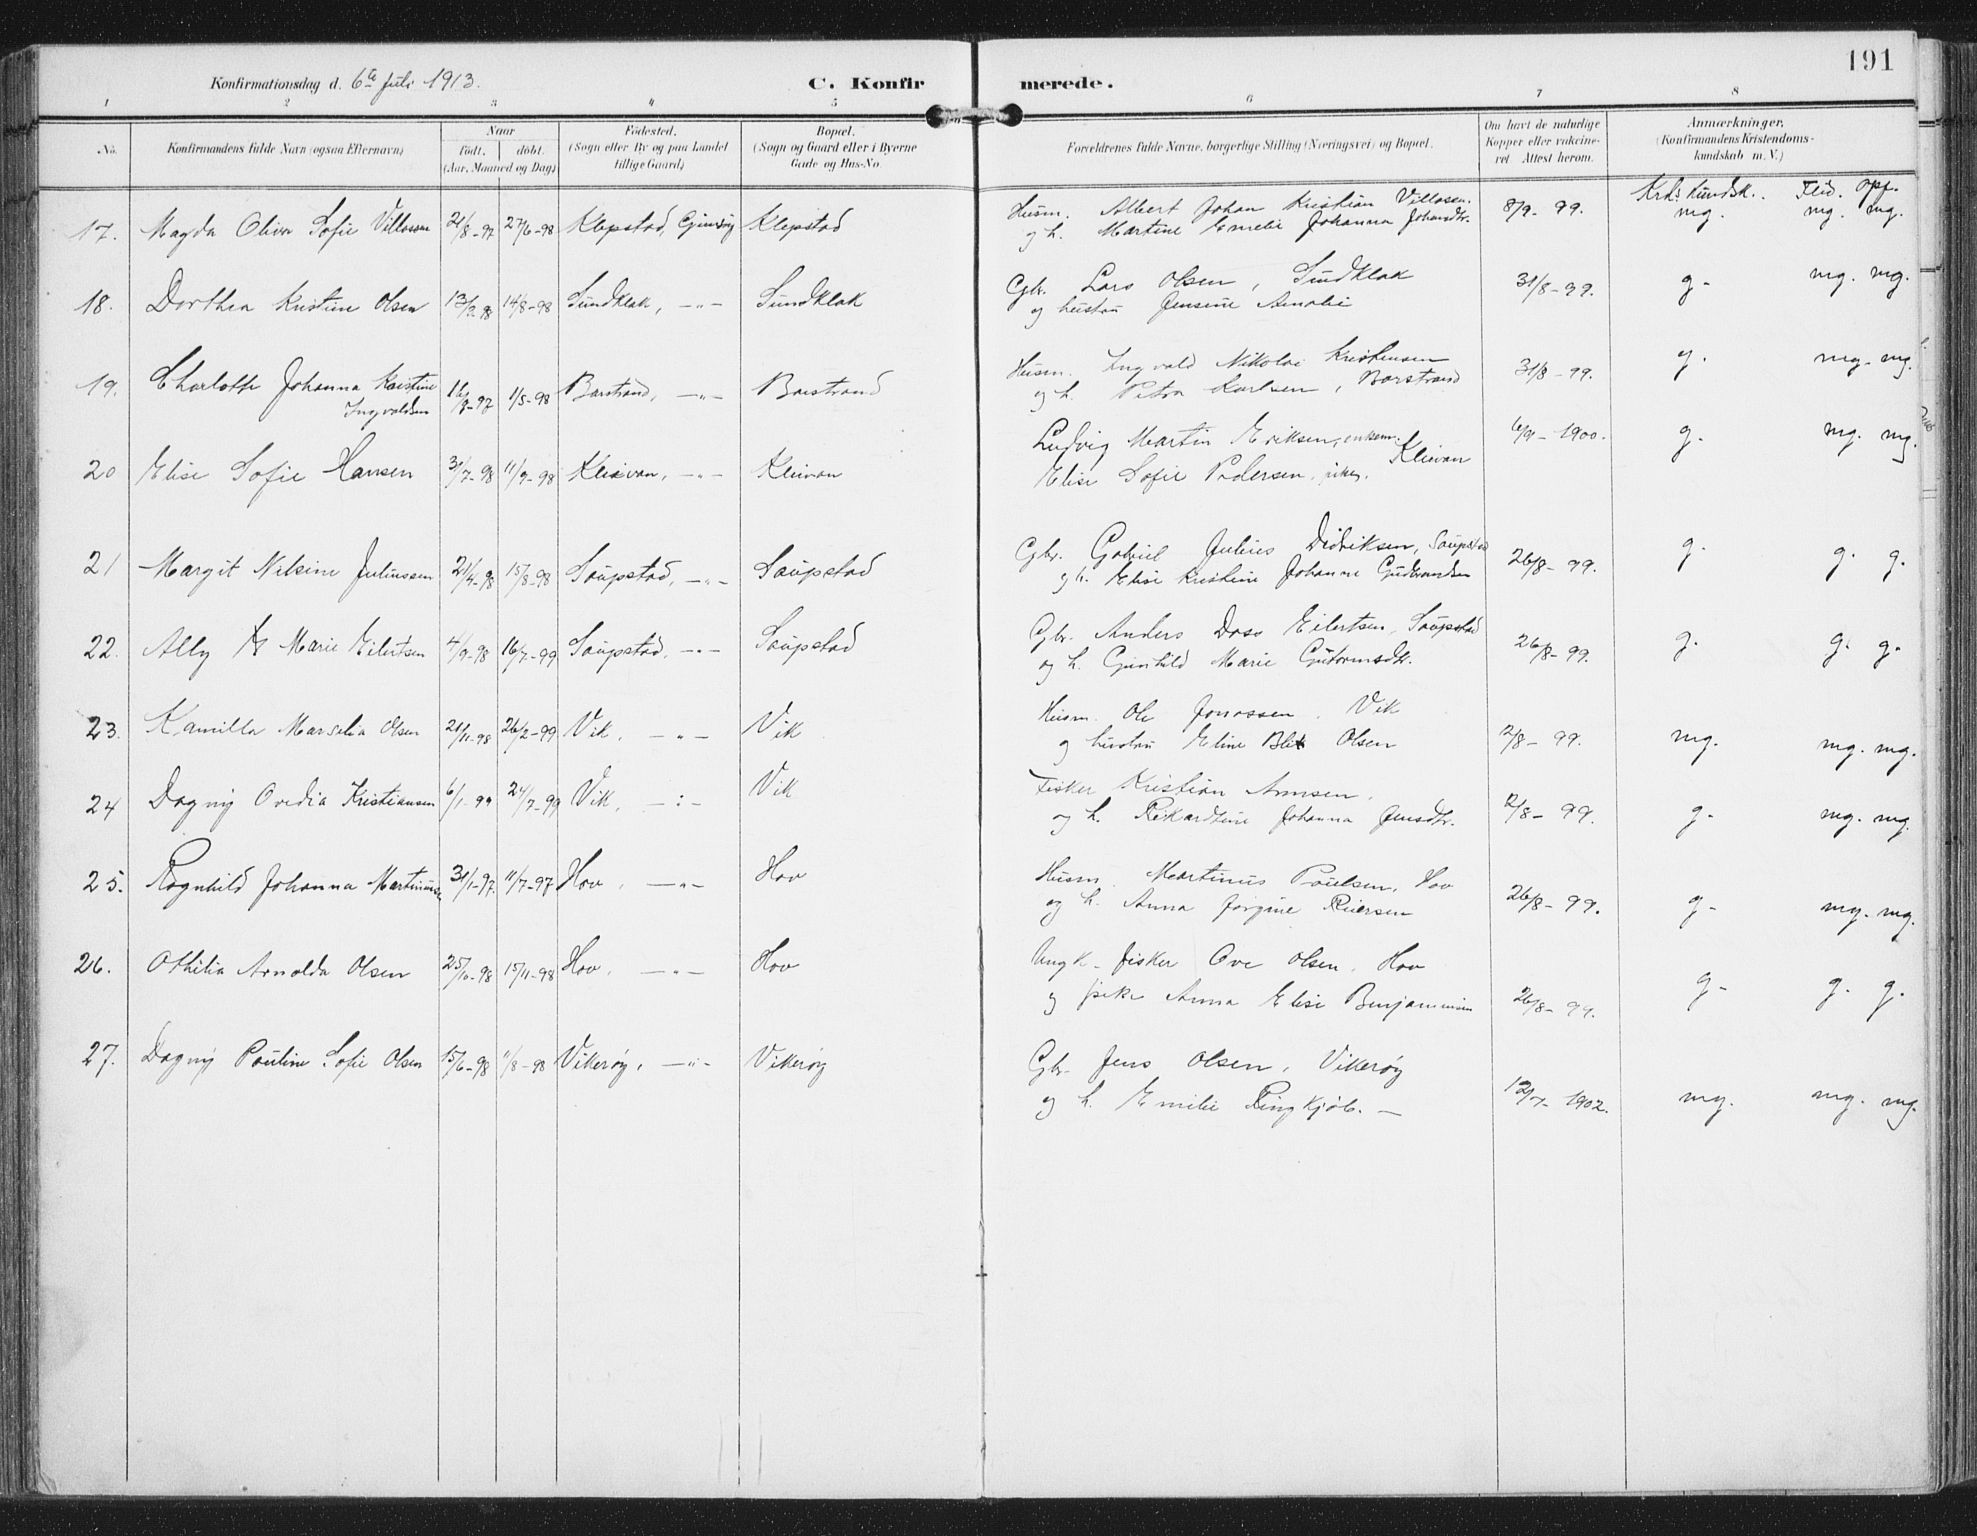 191
Konfirmationsdag d. 6te Juli 1913. C. Konfirmerede.
1 2 3 4 5 6 7 8
No. Konfirmandens fulde Navn (ogsaa Efternavn) Naar født. døbt. (Aar, Maaned og Dag) Fødested. (Sogn eller By og paa Landet tillige Gaard) Bopæl. (Sogn og Gaard eller i Byerne Gade og Hus-No. Forældrenes fulde Navne, borgerlige Stilling (Næringsvei) og Bopæl. Om havt de naturlige Kopper eller vakcineret. Attest herom. Anmærkninger. (Konfirmandens Kristendomskundskab m. V.)
Krk: kundsk. Flid. Opf.
17. Magda Oliva Sofie Villassen 21/8-97 27/6-98 Klepstad, Gimsøy Klepstad Husm. Albert Johan Kristian Villassen 8/9-99. mg. mg. mg.
og h. Martine Emelie Johanna Johansdtr.
18. Dorthea Kristine Olsen 14/8-98 Sundklak, -"- Sundklak Gbr. Lars Olsen, Sundklak 31/8-99. g. mg. mg.
og hustru Jensine Amalie
19. Charlotte Johanna Kristine 1/5-98 Barstrand, -"- Barstrand Husm. Ingvald Nikolai Kristensen 31/8-99. g. mg. mg.
Ingvaldsen og h. Petra Karlsen, Barstrand
20 Elise Sofie Hansen 31/7-98 11/9-98 Kleivan, -"- Kleivan Ludvig Martin Eriksen, enkem. Kleivan 6/9-1900. g. mg. mg.
Elise Sofie Pedersen, pike.
21 Margit Nelsine Juliussen 21/4-98 15/8-98 Saupstad, -"- Saupstad Gbr. Gabriel Julius Didriksen, Saupstad 26/8-99. g. g. g.
og h. Elise Kristine Johanne Gudbrandsen
22. Ally Marie Eilertsen 4/9-98 16/7-99 Saupstad, -"- Saupstad Gbr. Anders Dass Eilertsen, Saupstad 26/8-99. g. g. g.
og h. Gunhild Marie Guttormsdtr.
23. Kamilla Marselia Olsen 21/11-98 26/2-99 Vik, -"- Vik Husm. Ole Jonassen, Vik 12/8-99. mg. mg. mg.
og hustru Eline Olsen
24 Dagny Ovedia Kristiansen 6/1-99 24/7-99 Vik, -:- Vik Fisker Kristian Arnsen, 12/8-99. g. mg. mg.
og h. Rikardtine Johanna Jensdtr.
25. Ragnhild Johanna Martinus 31/1-97 11/7-97 Hov, -"- Hov Husm. Martinus Poulsen, Hov 26/8-99. g. mg. mg.
og h. Anna Jørgine Reiersen
26. Othilia Arnolda Olsen 25/10-98 15/11-98 Hov, -"- Hov Ungk. fisker Ove Olsen, Hov 26/8-99. g. g. g.
og pike Anna Elise Benjaminsen
27. Dagny Pauline Sofie Olsen 15/6-98 1/8-98 Vikerøy, -"- Vikerøy Gbr. Jens Olsen, Vikerøy 12/7-1902. mg. mg. mg.
og h. Emilie Ringkjøb. —